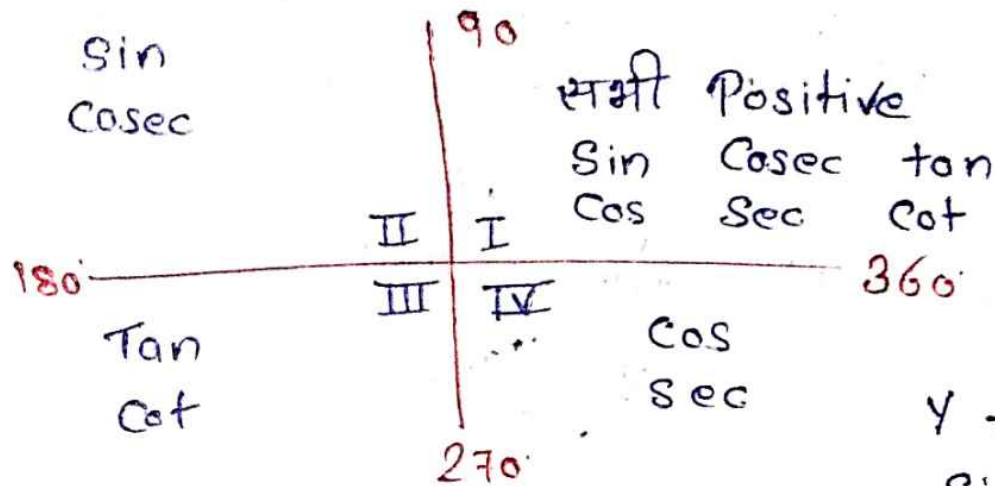 90
Sin
Cosec
सभी Positive
Sin Cosec tan
Cos Sec Cot
II I
180 360
III IV
Tan
Cot
Cos
Sec
Y
270